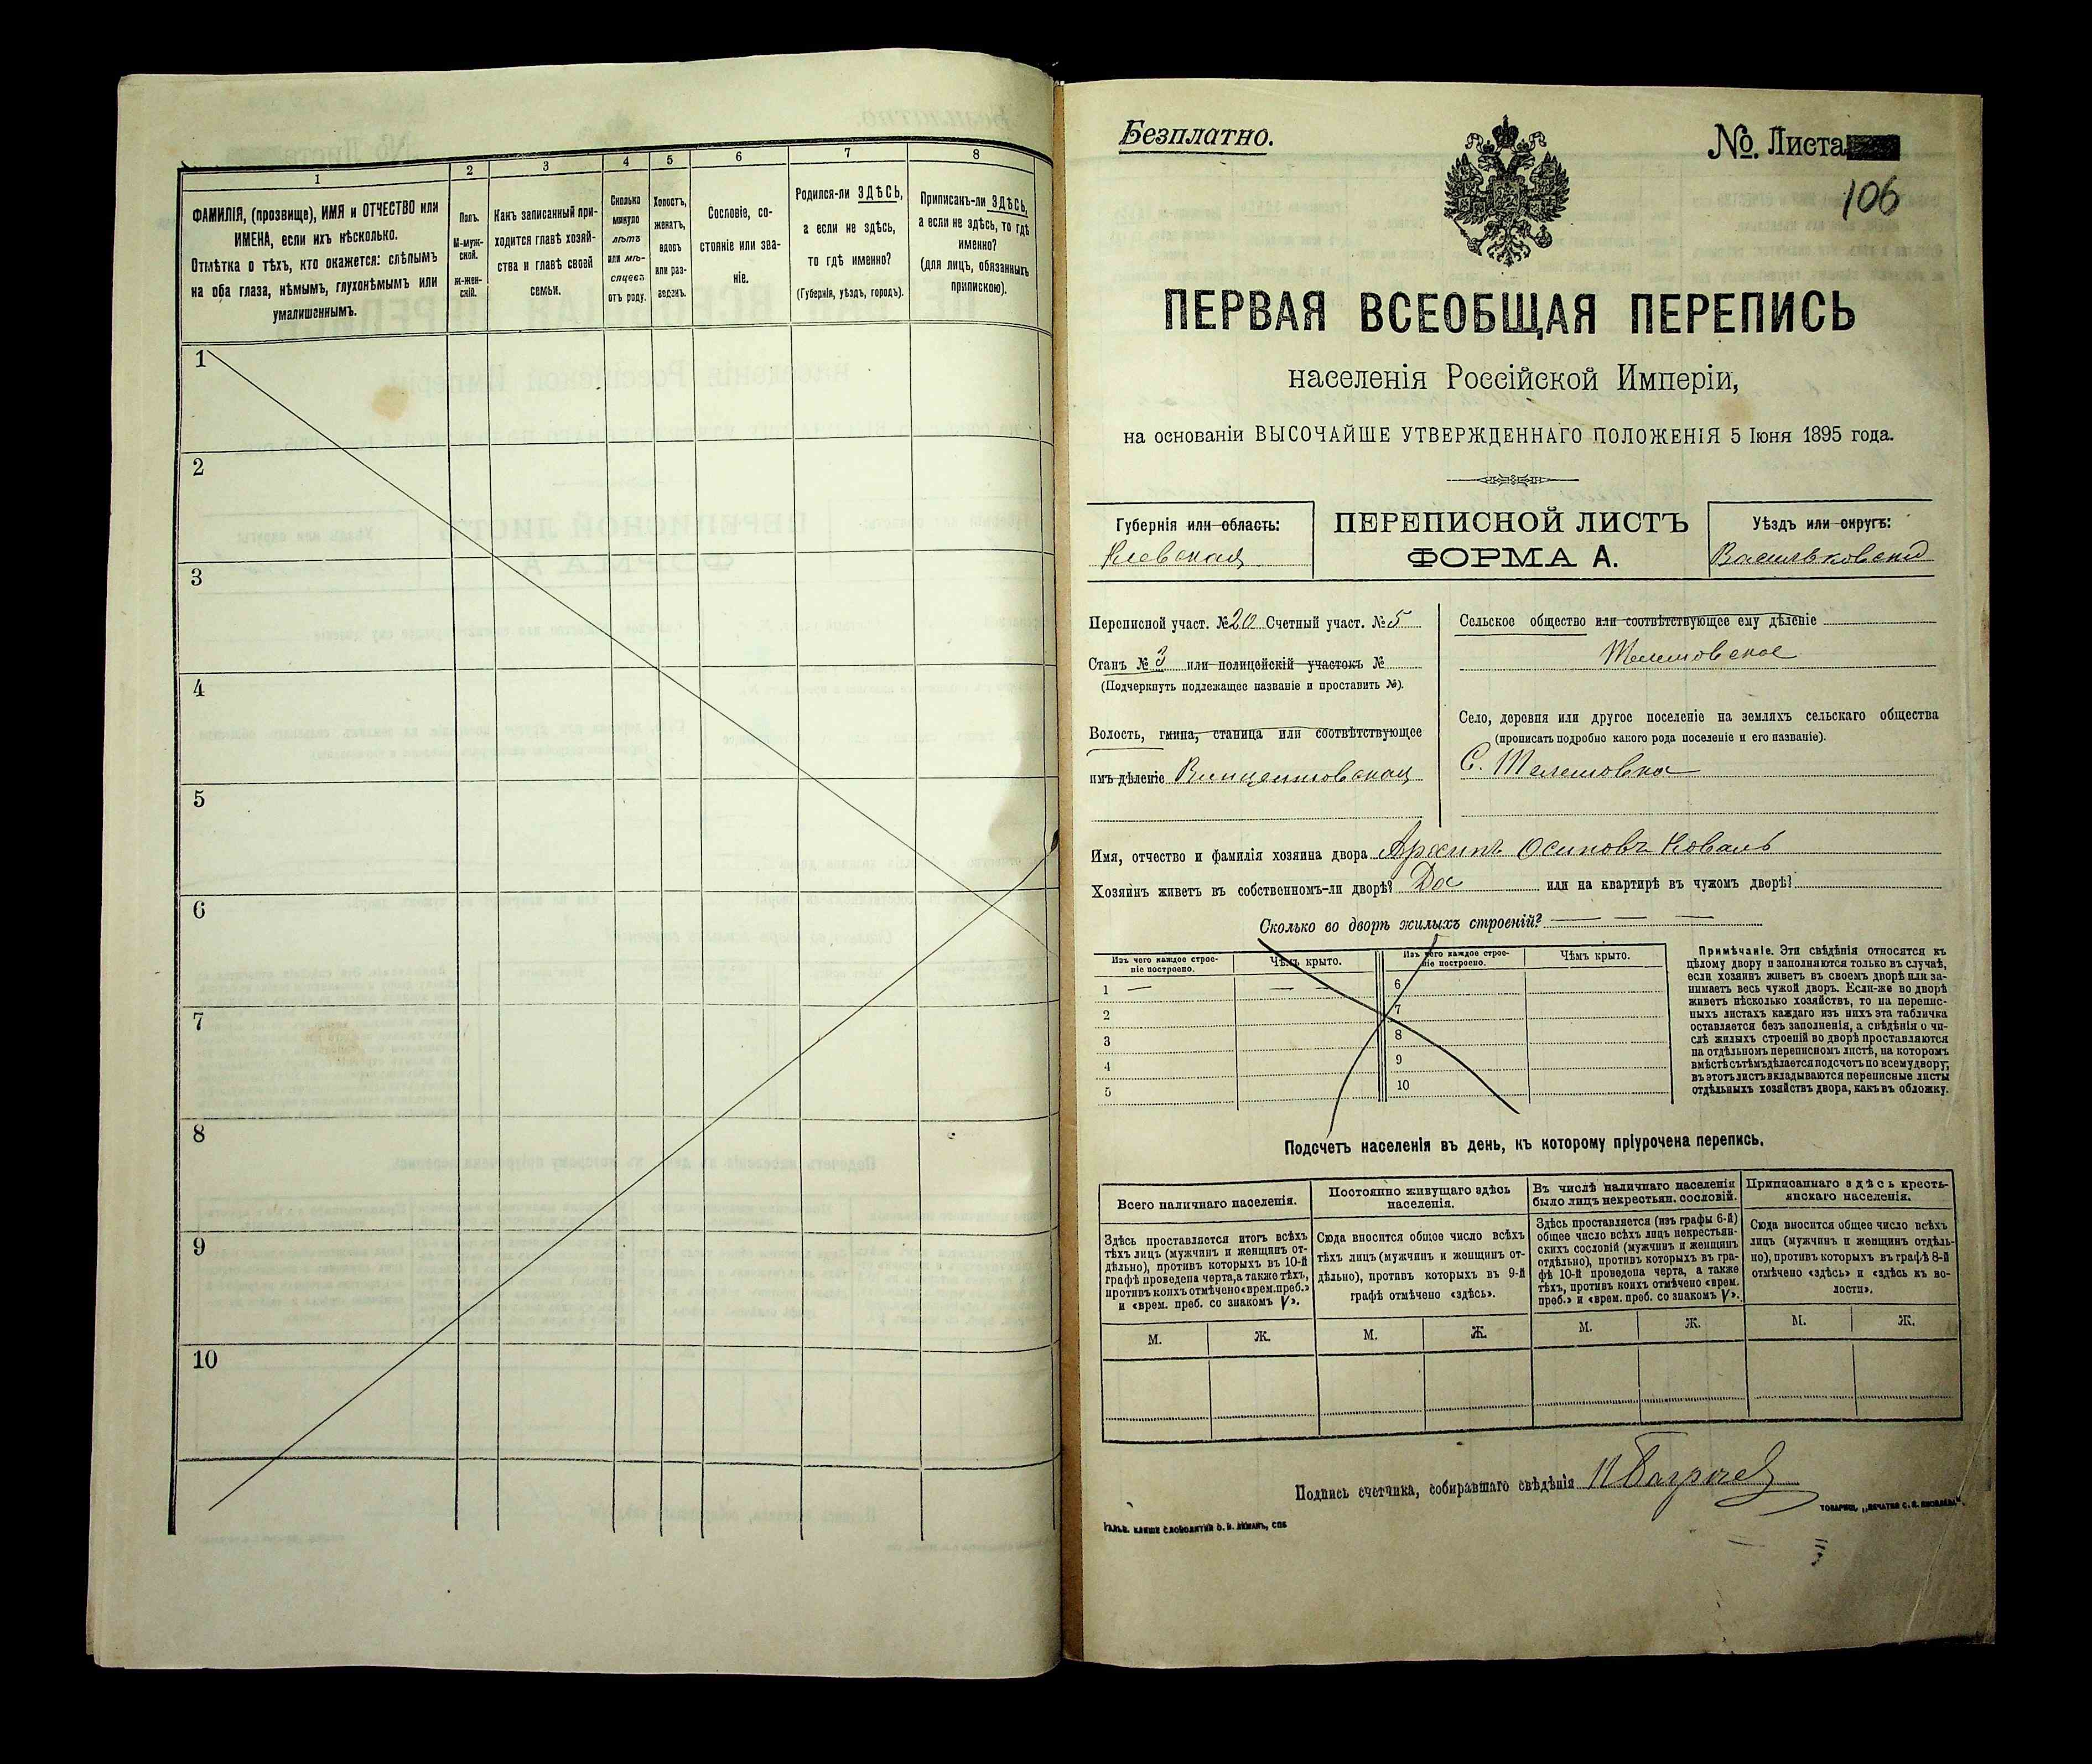 1
2
3
4
5
6
7
8
ФАМИЛІЯ, (прозвище), ИМЯ и ОТЧЕСТВО или
ИМЕНА, если ихъ нѣсколько.
Отмѣтка о тѣхъ, кто окажется: слѣпымъ
на оба глаза, нѣмымъ, глухонѣмымъ или
умалишеннымъ.
Полъ.
М-муж-
ской.
Ж-жен-
скій.
Какъ записанный при-
ходится главѣ хозяй-
ства и главѣ своей
семьи.
Сколько
минуло
лѣтъ
или мѣ-
сяцевъ
отъ роду.
Холостъ,
женатъ,
вдовъ
или раз-
веденъ.
Сословіе, со-
стояніе или зва-
ніе.
Родился-ли ЗДѢСЬ,
а если не здѣсь,
то гдѣ именно?
(Губернія, уѣздъ, городъ).
Приписанъ-ли ЗДѢСЬ,
а если не здѣсь, то гдѣ
именно?
(для лицъ, обязанныхъ
припискою).
1
2
3
4
5
6
7
8
9
10
Безплатно.
№ Листа
106
ПЕРВАЯ ВСЕОБЩАЯ ПЕРЕПИСЬ
населенія Россійской Имперіи,
на основаніи ВЫСОЧАЙШЕ УТВЕРЖДЕННАГО ПОЛОЖЕНІЯ 5 Іюня 1895 года.
Губернія или область:
Кіевская
ПЕРЕПИСНОЙ ЛИСТЪ
ФОРМА А.
Уѣздъ или округъ:
Васильковскій
Переписной участ. № 20 Счетный участ. № 5
Станъ № 3 или полицейскій участокъ №
(Подчеркнуть подлежащее названіе и проставить №).
Волость, гмина, станица или соотвѣтствующее
имъ дѣленіе Винцентовская
Сельское общество или соотвѣтствующее ему дѣленіе
Телешовское
Село, деревня или другое поселеніе на земляхъ сельскаго общества
(прописать подробно какого рода поселеніе и его названіе).
С. Телешовка
Имя, отчество и фамилія хозяина двора Архипъ Осиповъ Коваль
Хозяинъ живетъ въ собственномъ-ли дворѣ? Да или на квартирѣ въ чужомъ дворѣ?
Сколько во дворѣ жилыхъ строеній?
Изъ чего каждое строе-
ніе построено.
Чѣмъ крыто.
Изъ чего каждое строе-
ніе построено.
Чѣмъ крыто.
1
2
3
4
5
6
7
8
9
10
Примѣчаніе. Эти свѣдѣнія относятся къ
цѣлому двору и заполняются только въ случаѣ,
если хозяинъ живетъ въ своемъ дворѣ или за-
нимаетъ весь чужой дворъ. Если-же во дворѣ
живетъ нѣсколько хозяйствъ, то на перепис-
ныхъ листахъ каждаго изъ нихъ эта табличка
оставляется безъ заполненія, а свѣдѣнія о чи-
слѣ жилыхъ строеній во дворѣ проставляются
на отдѣльномъ переписномъ листѣ, на которомъ
вмѣстѣ съ тѣмъ дѣлается подсчетъ по всему двору;
въ этотъ листъ вкладываются переписные листы
отдѣльныхъ хозяйствъ двора, какъ въ обложку.
Подсчетъ населенія въ день, къ которому пріурочена перепись.
Всего наличнаго населенія.
Здѣсь проставляется итогъ всѣхъ
тѣхъ лицъ (мужчинъ и женщинъ от-
дѣльно), противъ которыхъ въ 10-й
графѣ проведена черта, а также тѣхъ,
противъ коихъ отмѣчено «врем. преб.»
и «врем. преб. со знакомъ V».
Постоянно живущаго здѣсь
населенія.
Сюда вносится общее число всѣхъ
тѣхъ лицъ (мужчинъ и женщинъ от-
дѣльно), противъ которыхъ въ 9-й
графѣ отмѣчено «здѣсь».
Въ числѣ наличнаго населенія
было лицъ некрестьян. сословій.
Здѣсь проставляется (изъ графы 6-й)
общее число всѣхъ лицъ некрестьян-
скихъ сословій (мужчинъ и женщинъ
отдѣльно), противъ которыхъ въ гра-
фѣ 10-й проведена черта, а также
тѣхъ, противъ коихъ отмѣчено «врем.
преб.» и «врем. преб. со знакомъ V».
Приписаннаго здѣсь кресть-
янскаго населенія.
Сюда вносится общее число всѣхъ
лицъ (мужчинъ и женщинъ отдѣль-
но), противъ которыхъ въ графѣ 8-й
отмѣчено «здѣсь» и «здѣсь къ во-
лости».
М. Ж. М. Ж. М. Ж. М. Ж.
Подпись счетчика, собиравшаго свѣдѣнія